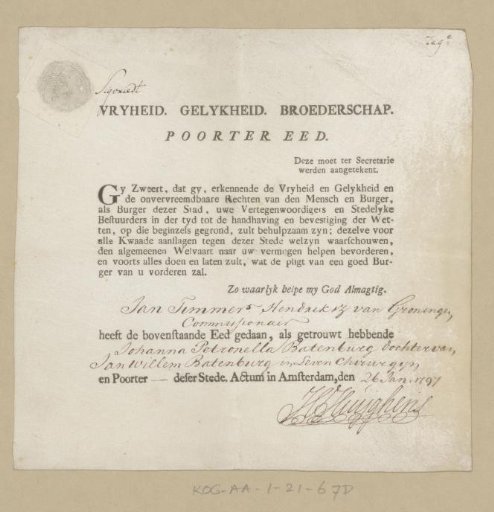 Zeg.
VRYHEID. GELYKHEID. BROEDERSCHAP.
POORTER EED.
Deze moet ter Secretarie
werden aangetekent.
Gy Zweert, dat gy, erkennende de Vryheid en Gelykheid en
de onvervreemdbaare Rechten van den Mensch en Burger,
als Burger dezer Stad, uwe Vertegenwoordigers en Stedelyke
Bestuurders in der tyd tot de handhaving en bevestiging der Wet-
ten, op die beginzels gegrond, zult behulpzaam zyn; dezelve voor
alle Kwaade aanslagen tegen dezer Stede welzyn waarschouwen,
den algemeenen Welvaart naar uw vermogen helpen bevorderen,
en voorts alles doen en laten zult, wat de pligt van een goed Bur-
ger van u vorderen zal.
Zo waarlyk helpe my God Almagtig.
Jan Timmer Hendriksz van Groningen
Commissionair
heeft de bovenstaande Eed gedaan, als getrouwt hebbende
Johanna Petronella Batenburg dochter van
Jan Willem Batenburg in Leven Chirurgyn
en Poorter deser Stede. Actum in Amsterdam, den 26 Jan. 1797
Huijghens
KOG-AA-1-21-67D